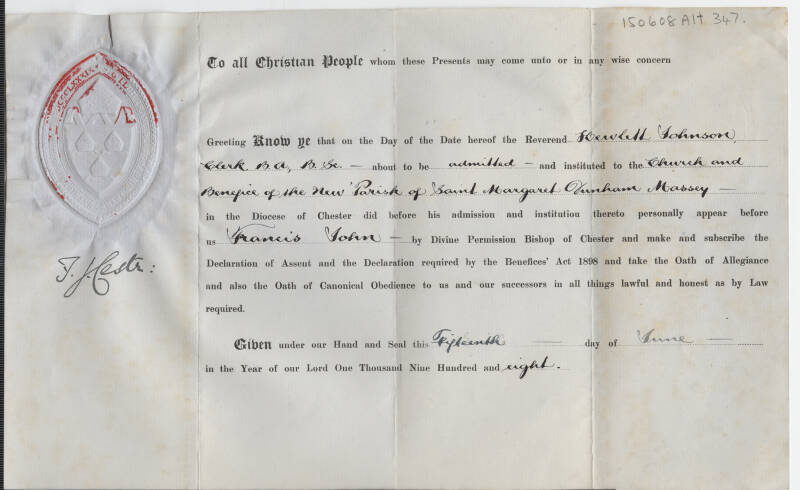 150608 Alt 347.
To all Christian People whom these Presents may come unto or in any wise concern
Greeting Know ye that on the Day of the Date hereof the Reverend Hewlett Johnson,
Clerk B A, B. Sc. — about to be admitted — and instituted to the Church and
Benefice of the New Parish of Saint Margaret Dunham Massey —
in the Diocese of Chester did before his admission and institution thereto personally appear before
us Francis John — by Divine Permission Bishop of Chester and make and subscribe the
Declaration of Assent and the Declaration required by the Benefices' Act 1898 and take the Oath of Allegiance
and also the Oath of Canonical Obedience to us and our successors in all things lawful and honest as by Law
required.
F. J. Cestr:
Given under our Hand and Seal this Fifteenth — day of June —
in the Year of our Lord One Thousand Nine Hundred and eight.